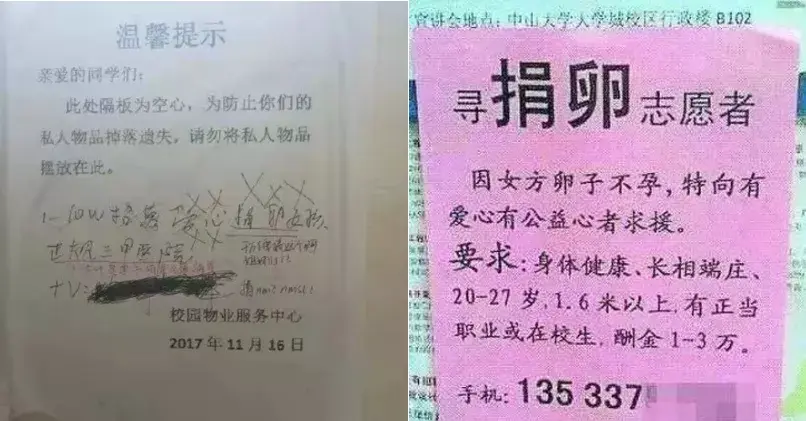 温馨提示
亲爱的同学们：
此处隔板为空心，为防止你们的
私人物品掉落遗失，请勿将私人物品
摆放在此。
1-10W 爱心捐卵
正规三甲医院
+V:
校园物业服务中心
2017年11月16日
宣讲会地点：中山大学大学城校区行政楼B102
寻捐卵志愿者
因女方卵子不孕，特向有
爱心有公益心者求援。
要求：身体健康、长相端庄、
20-27岁，1.6米以上，有正当
职业或在校生，酬金1-3万。
手机：135 337